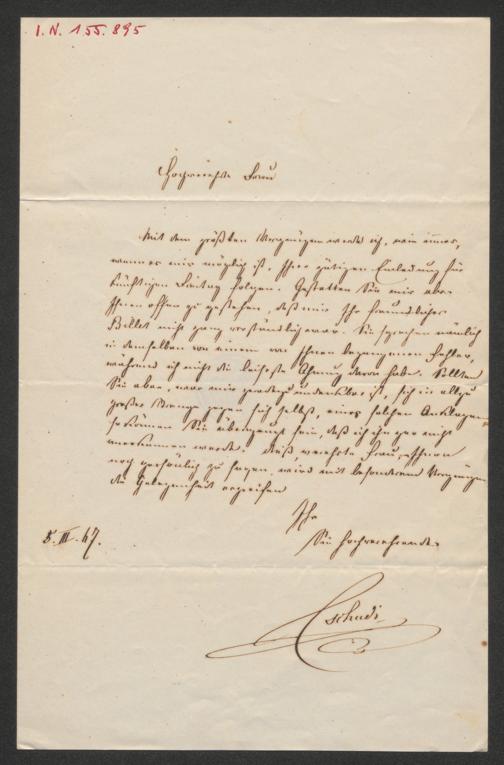 I. N. 155.895
Hochverehrte Frau
Mit dem größten Vergnügen werde ich, wie immer,
wenn es mir möglich ist, Ihrer gütigen Einladung für
künftigen Freitag folgen. Gestatten Sie mir aber
Ihnen offen zu gestehen, daß mir Ihr freundliches
Billet nicht ganz verständlich war. Sie sprechen nämlich
in demselben von einem von Ihnen begangenen Fehler,
während ich nicht die leiseste Ahnung davon habe. Sollten
Sie aber, was mir geradezu undenkbar ist, sich in allzu
großer Strenge gegen sich selbst, eines solchen Anklagen
so können Sie überzeugt sein, daß ich ihn gar nicht
anerkennen werde. Dieß, verehrte Frau, Ihnen
noch persönlich zu sagen, wird mit besonderem Vergnügen
die Gelegenheit ergreifen
Ihr
Sie hochverehrender
5. III. 67.
Tschudi